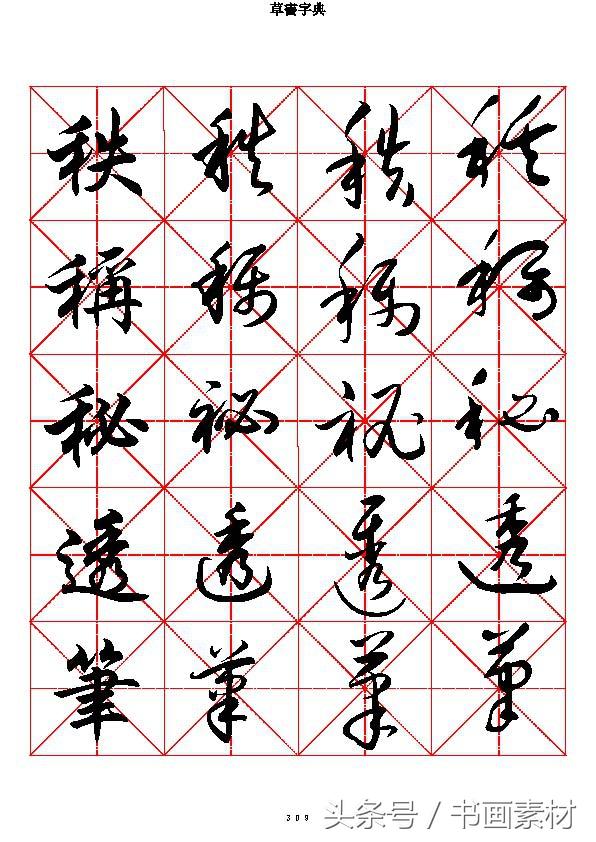 草書字典
秩 秩 秩 秩
稱 稱 稱 稱
秘 秘 秘 秘
透 透 透 透
筆 筆 筆 筆
309
头条号 / 书画素材